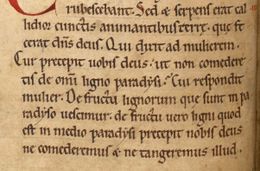 Erubescebant. Sed & serpens erat cal
lidior cunctis animantibus terre. que fe
cerat dn̄s deus. Qui dixit ad mulierem.
Cur precepit uobis deus. ut non comedere
tis de om̄i ligno paradysi. Cui respondit
mulier. De fructu lignorum que sunt in pa
radyso uescimur. de fructu uero ligni quod
est in medio paradysi precepit nobis deus
ne comederemus & ne tangeremus illud.